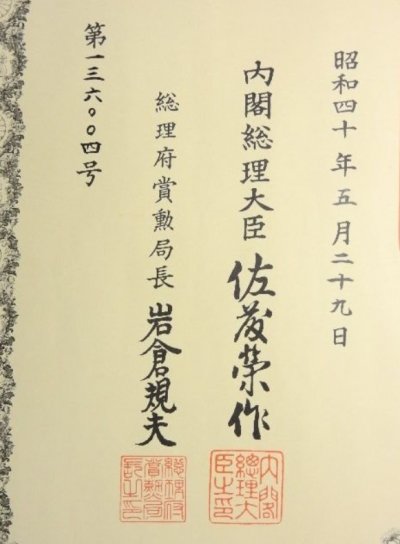 昭和四十年五月二十九日
内閣総理大臣 佐藤榮作
内閣總理大臣之印
総理府賞勲局長 岩倉規夫
總理府賞勳局長之印
第一三六〇〇四号